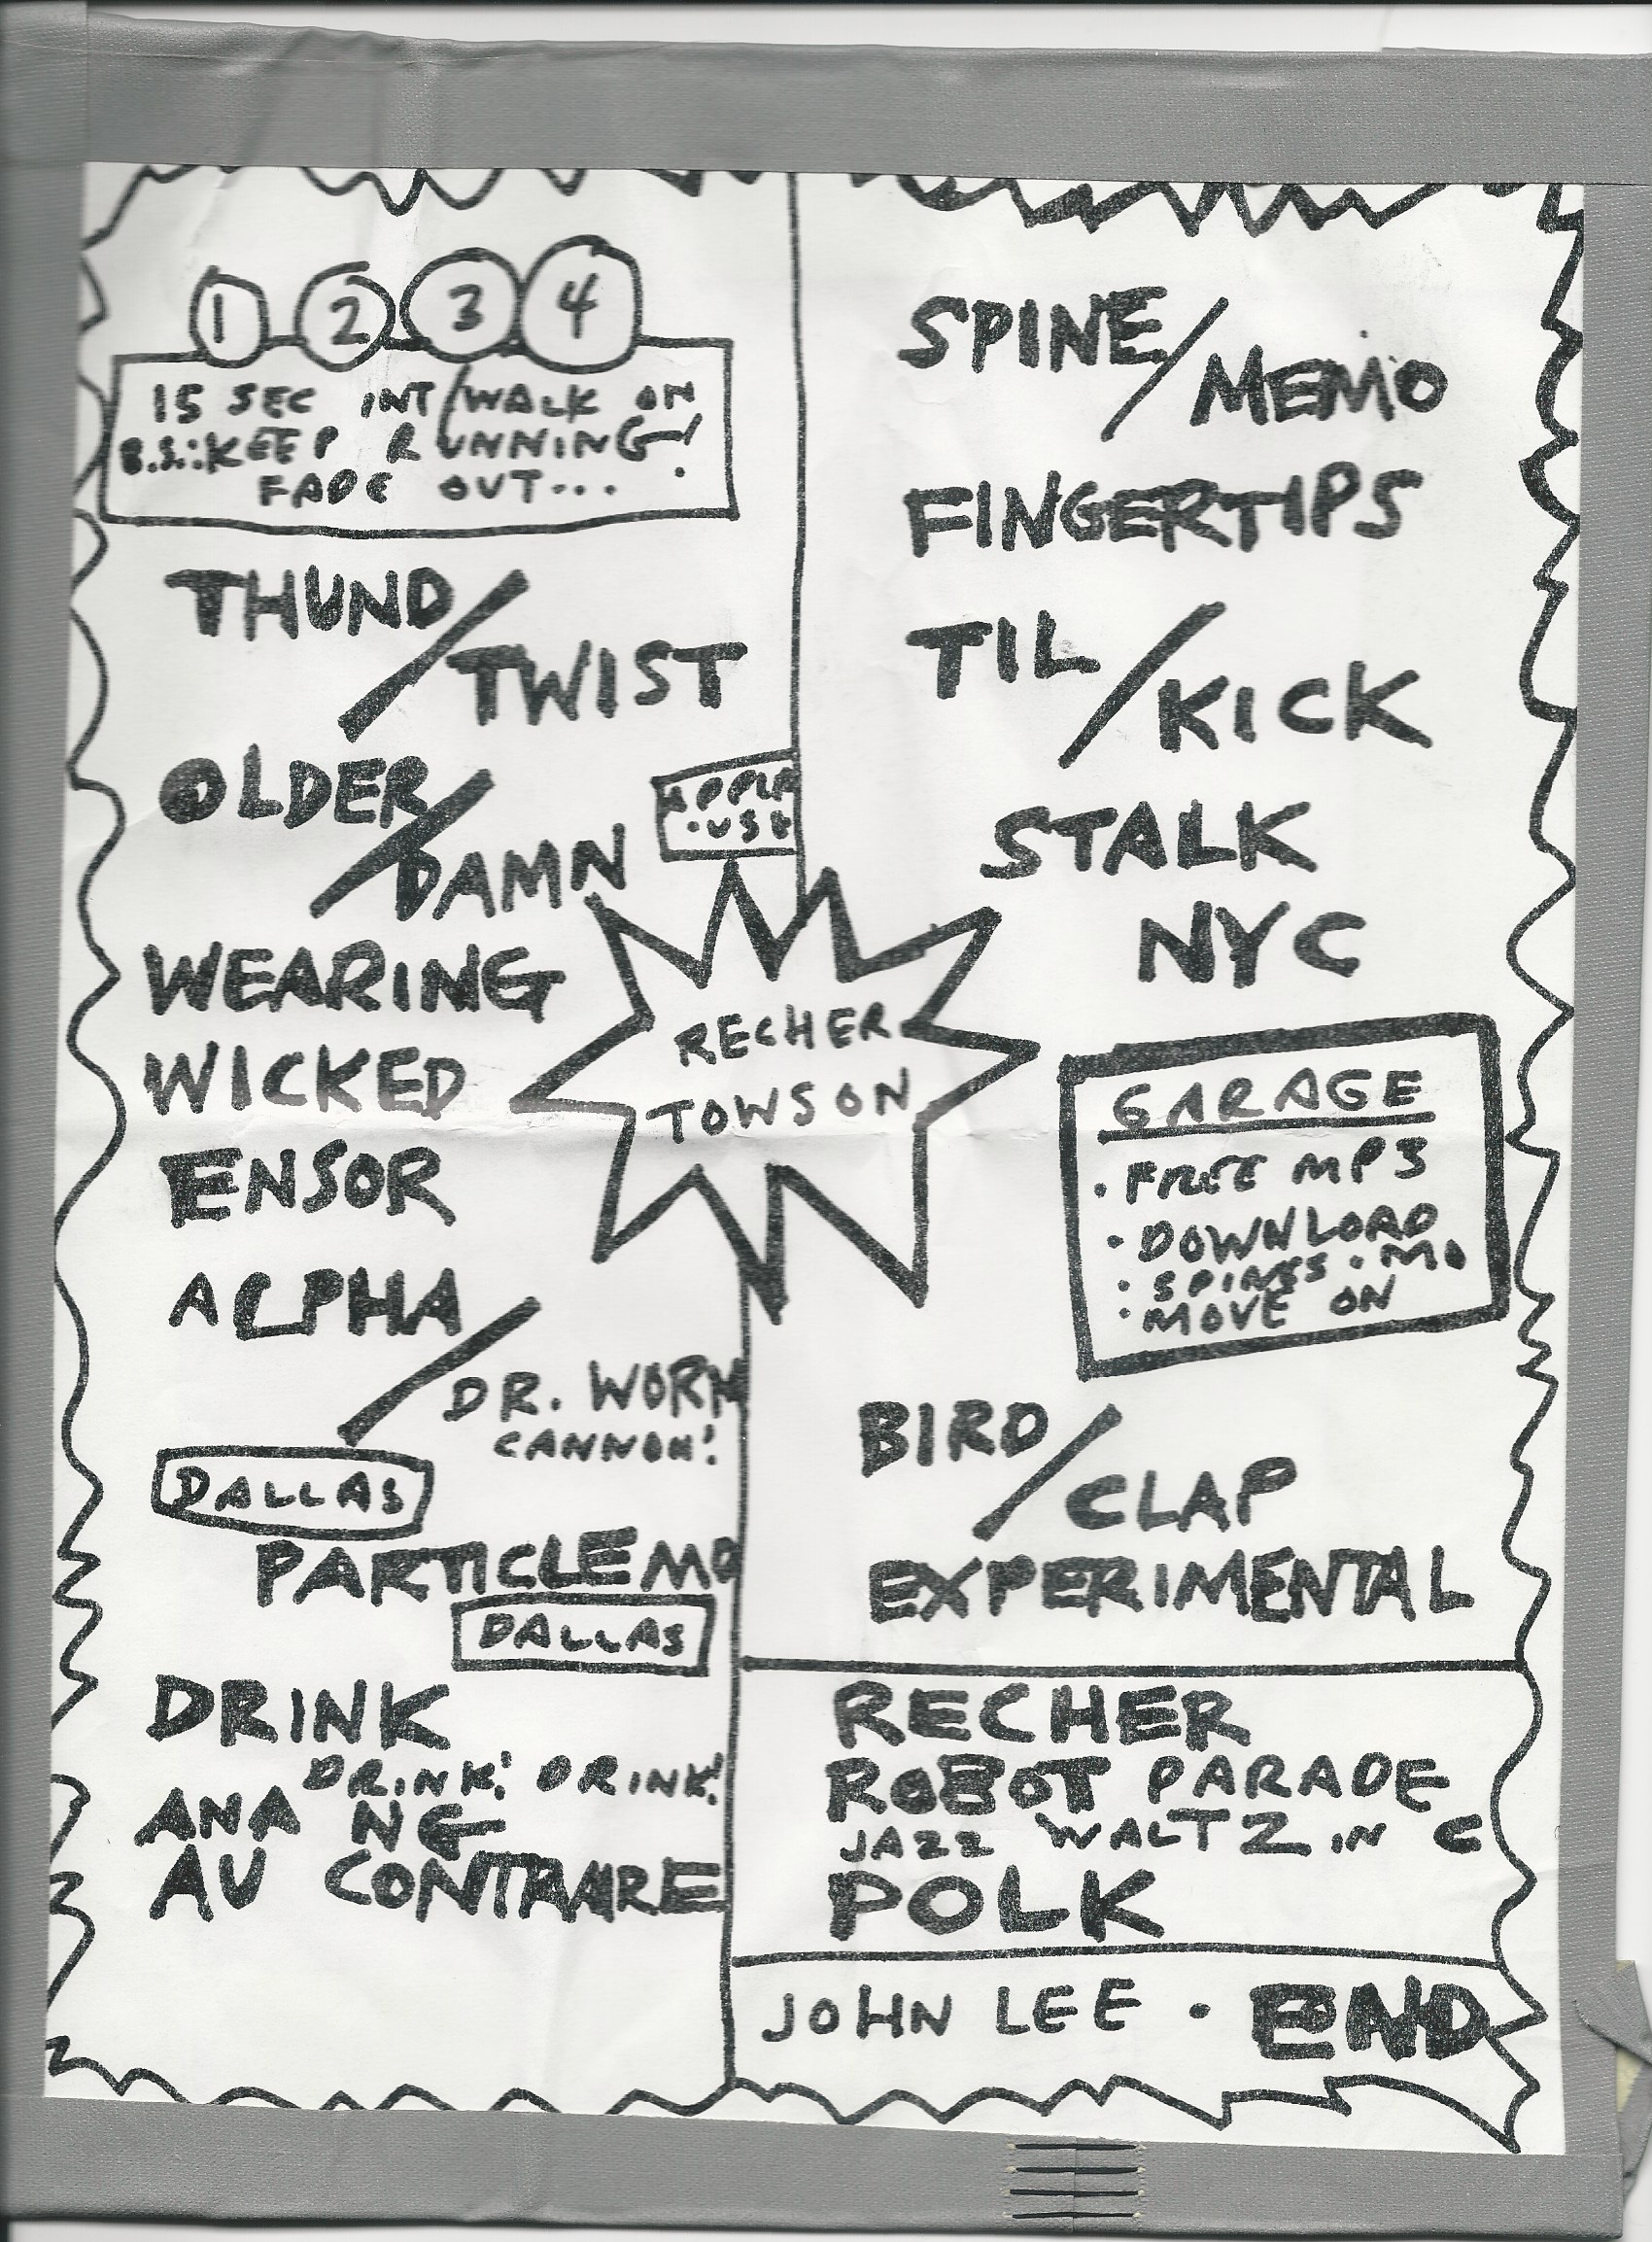 1 2 3 4
15 SEC INT/WALK ON
B.S.: KEEP RUNNING!
FADE OUT...
THUND/TWIST
OLDER/DAMN
WEARING
WICKED
ENSOR
ALPHA/DR. WORM
CANNON!
DALLAS
PARTICLE MO
DALLAS
DRINK
DRINK! DRINK!
ANA NG
AU CONTRAIRE
RECHER
TOWSON
SPINE/MEMO
FINGERTIPS
TIL/KICK
STALK
NYC
GARAGE
• FREE MP3
• DOWNLOAD
• SPINES • MO
• MOVE ON
BIRD/CLAP
EXPERIMENTAL
RECHER
ROBOT PARADE
JAZZ WALTZ IN C
POLK
JOHN LEE • END